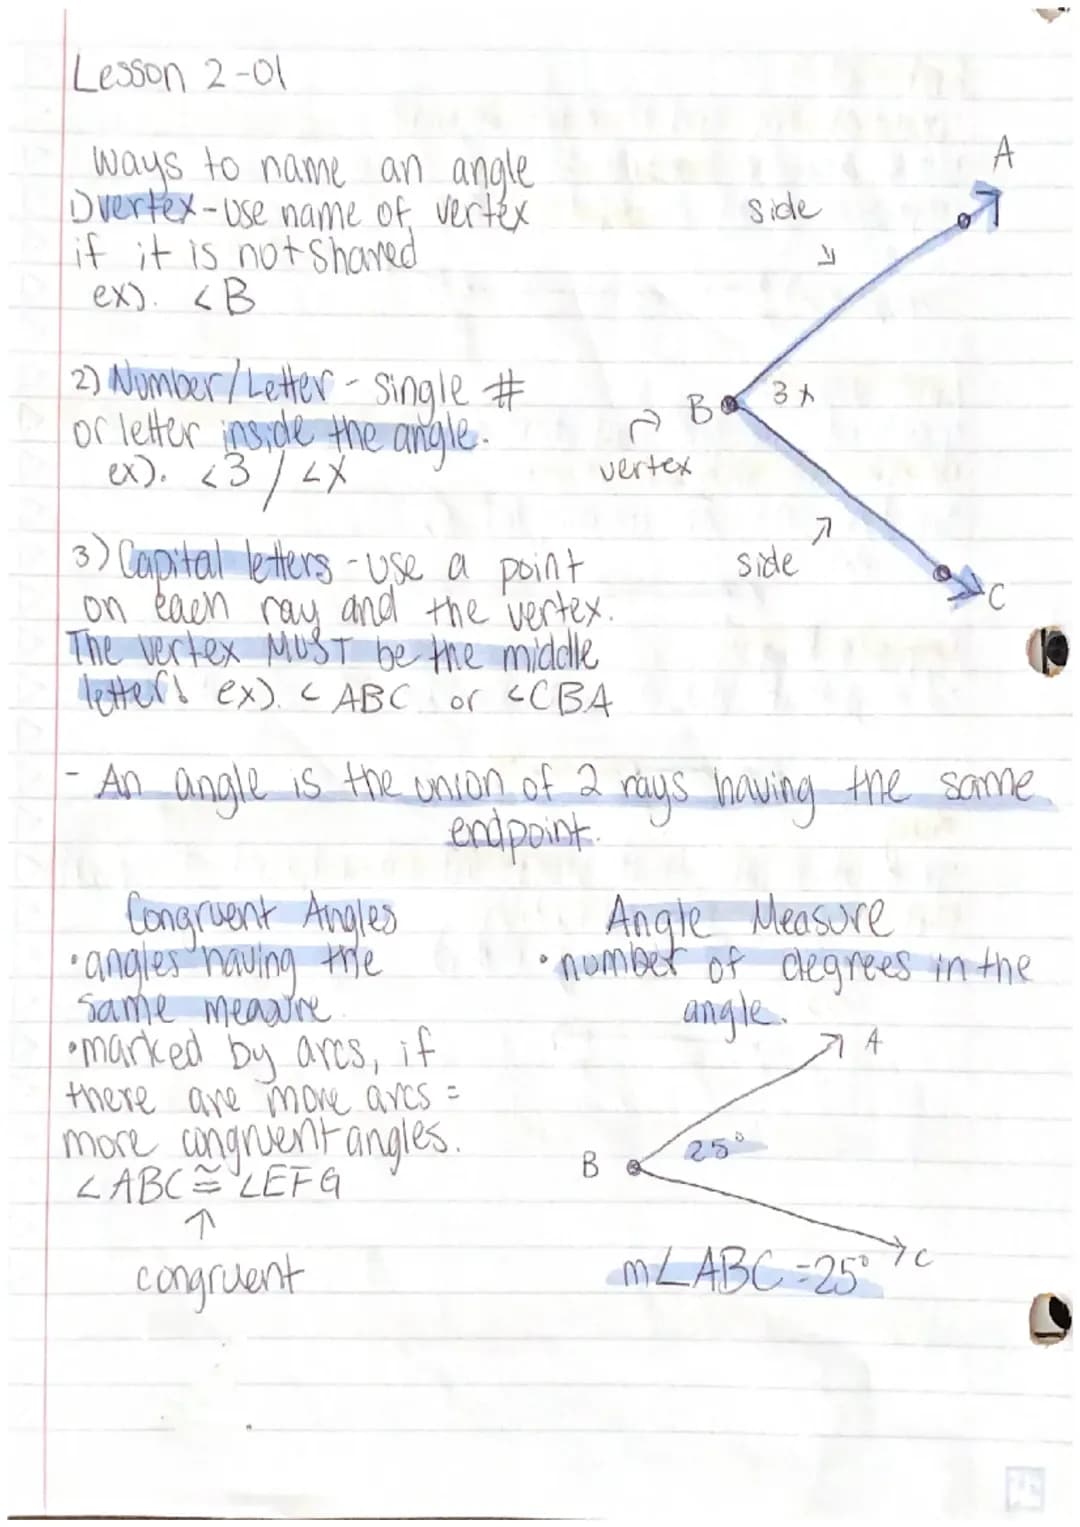 Lesson 2-01
ways to name an angle
1) vertex - use name of vertex
if it is not shared
ex). <B
2) Number/Letter - single #
or letter inside the angle.
ex). <3 / ∠X
3) Capital letters - use a point
on each ray and the vertex.
The vertex MUST be the middle
letter! ex). <ABC or <CBA
A
side
B
3 x
vertex
side
C
- An angle is the union of 2 rays having the same
endpoint.
Congruent Angles
• angles having the
same measure.
• marked by arcs, if
there are more arcs =
more congruent angles.
∠ABC ≅ ∠EFG
↑
congruent
Angle Measure
• number of degrees in the
angle.
A
B
25°
C
m∠ABC = 25°